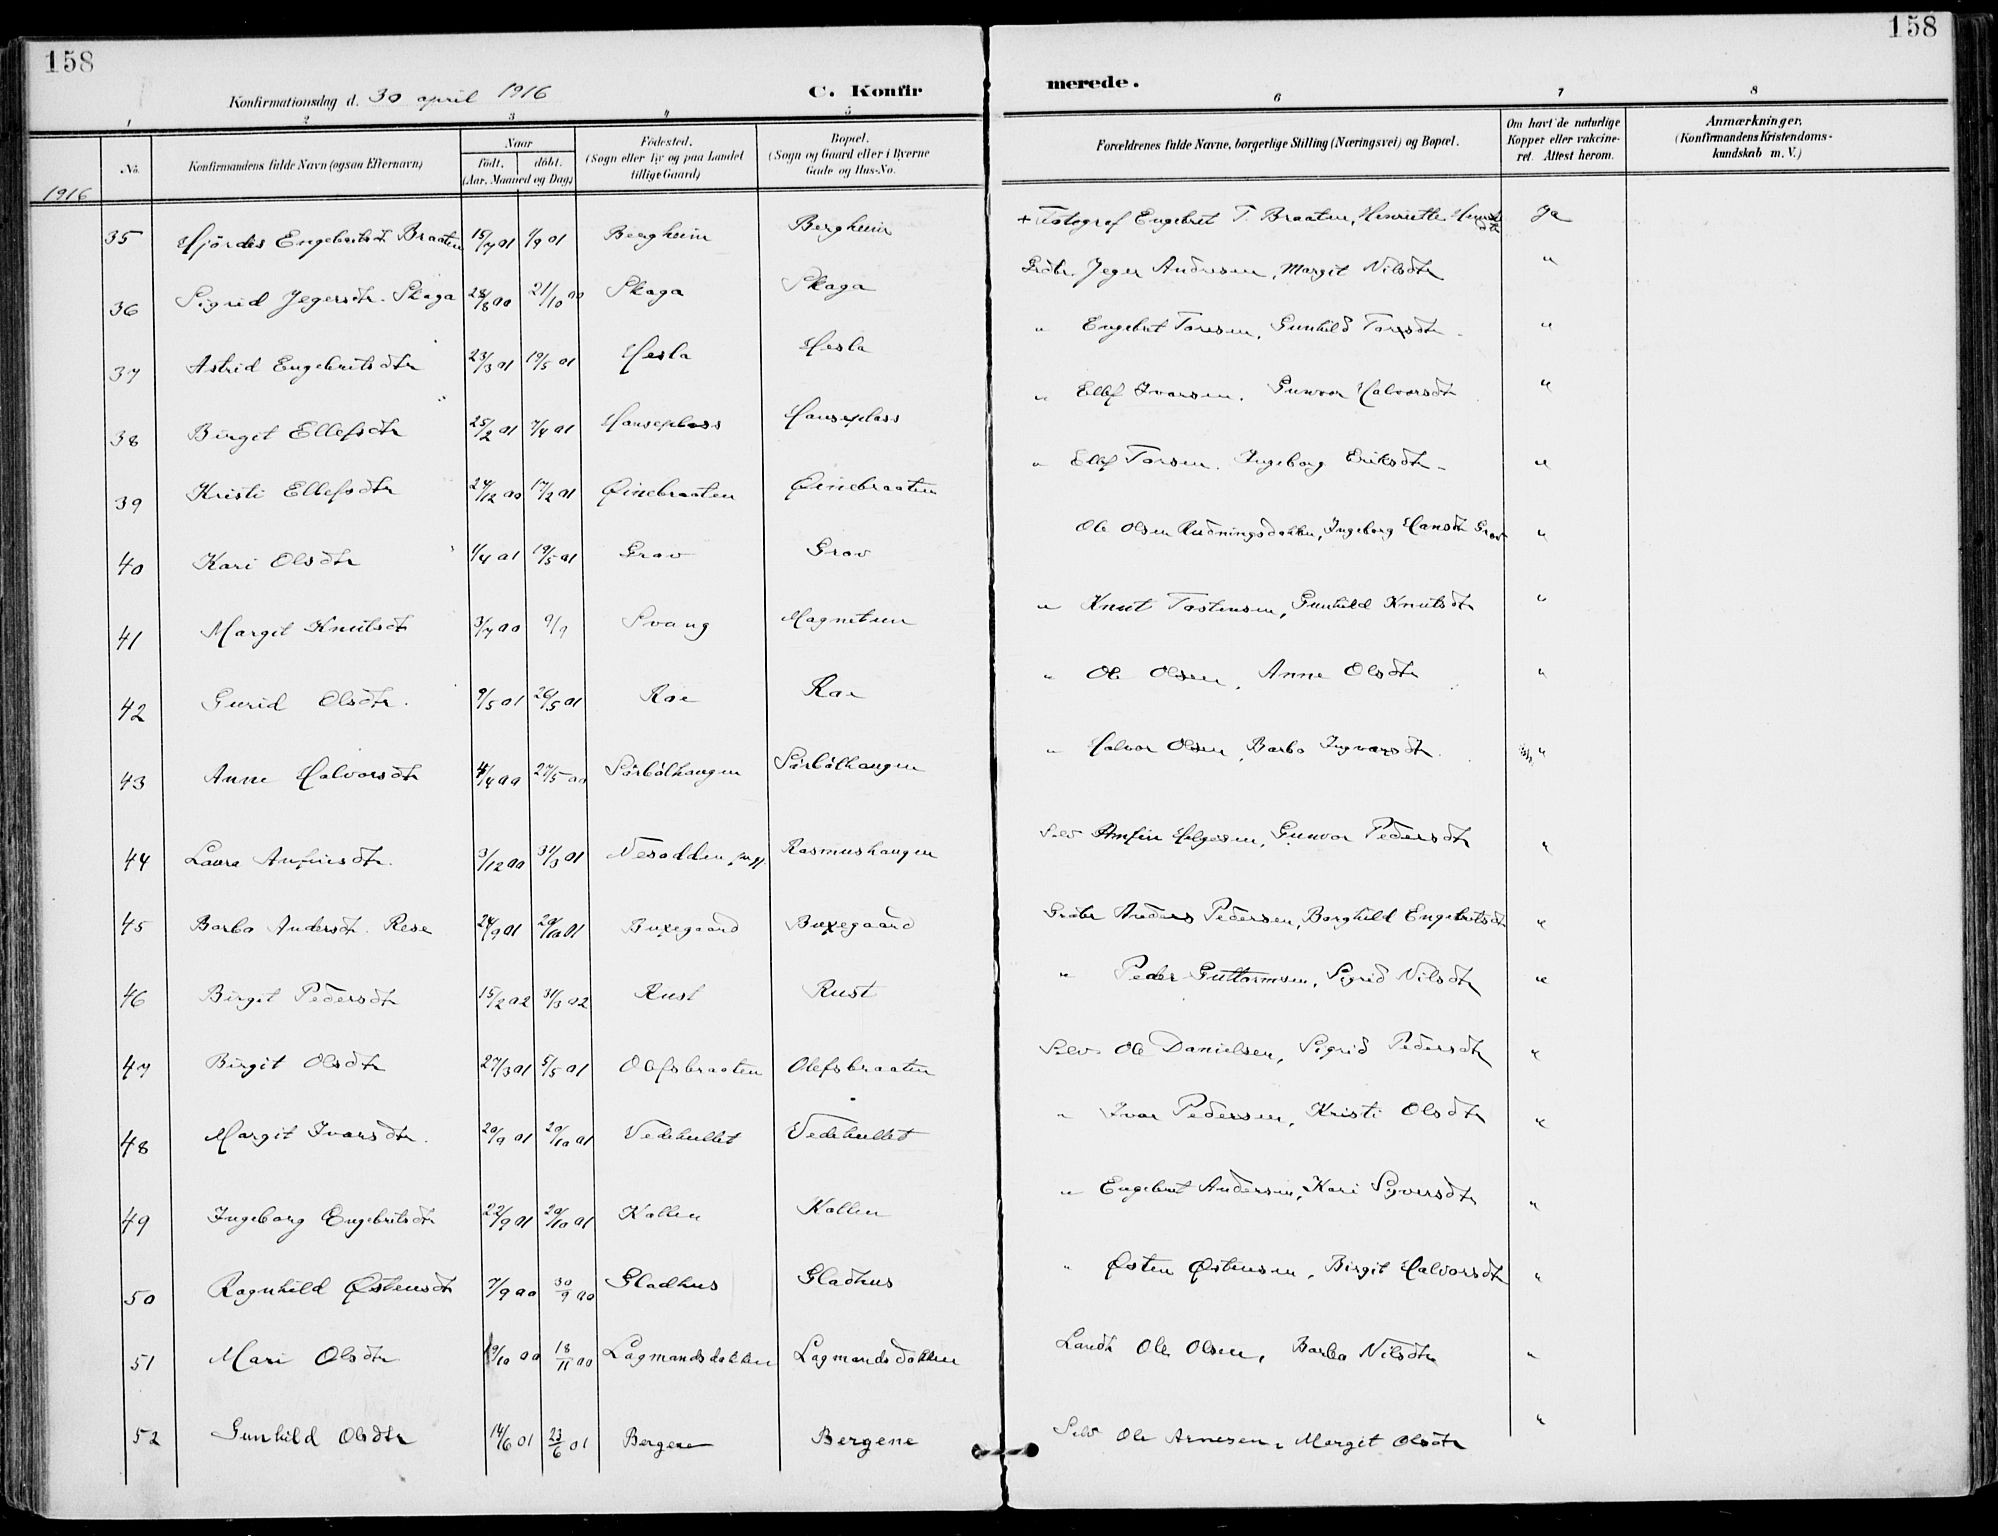 158
158
Konfirmationsdag d. 30 april 1916
C. Konfir
merede.
1 2 3 4 5 6 7 8
No.
Konfirmandens fulde Navn (ogsaa Efternavn)
Naar
født. døbt.
(Aar, Maaned og Dag)
Fødested.
(Sogn eller By og paa Landet
tillige Gaard)
Bopæl.
(Sogn og Gaard eller i Byerne
Gade og Hus-No.
Forældrenes fulde Navne, borgerlige Stilling (Næringsvei) og Bopæl.
Om havt de naturlige
Kopper eller vakcine-
ret. Attest herom.
Anmærkninger,
(Konfirmandens Kristendoms-
kundskab m. V.)
1916
35 Hjördis Engebritsdt Braaten 15/7 01 1/9 01 Bergheim Bergheim + Fotograf Engebret T. Braaten, Henriette Ja
36 Sigrid Jegersdtr. Skaga 28/8 00 21/10 00 Skaga Skaga Grdbr. Jeger Andresen, Margit Nilsdtr "
37 Astrid Engebritsdtr 23/3 01 19/5 01 Hesla Hesla " Engebret Toresen, Gunhild Torsdtr "
38 Birgit Ellefsdtr 25/2 01 7/4 01 Hanseplass Hanseplass " Ellef Ivarsen. Gunvor Halvorsdtr "
39 Kristi Ellefsdtr 24/12 00 17/2 01 Øinebraaten Øinebraaten " Ellef Torsen. Ingeborg Eriksdtr "
40 Kari Olsdtr 1/4 01 19/5 01 Grov Grov Ole Olsen Rudningsdokken, Ingeborg Hansdtr Grov "
41 Margit Knutsdtr 3/7 00 9/9 Svang Magnetun " Knut Tostensen, Gunhild Knutsdtr "
42 Gurid Olsdtr. 9/5 01 26/5 01 Roe Roe " Ole Olsen, Anne Olsdtr "
43 Anne Halvorsdtr 4/4 00 27/5 00 Sörbölhaugen Sörbölhaugen " Halvor Olsen, Barbo Ingvarsdtr "
44 Laura Anfinsdtr. 3/12 00 31/3 01 Nesodden, Rasmushaugen Selv Anfin Helgesen, Gunvor Pedersdtr "
45 Barbo Andersdt. Rese 24/9 01 20/10 01 Buxegaard Buxegaard Grdbr Anders Pedersen, Borghild Engebritsdtr "
46 Birgit Pedersdtr 15/2 02 31/3 02 Rust Rust " Peder Guttormsen, Sigrid Nilsdtr "
47 Birgit Olsdtr 27/3 01 5/5 01 Olefsbraaten Olefsbraaten Selv. Ole Danielsen, Sigrid Pedersdtr "
48 Margit Ivarsdtr. 20/9 01 20/10 01 Vedehullet Vedehullet " Ivar Pedersen, Kristi Olsdtr "
49 Ingeborg Engebritsdtr 22/9 01 20/10 01 Kollen Kollen " Engebret Andersen, Kari Syversdtr "
50 Ragnhild Østensdtr 7/9 00 30/9 00 Gladhus Gladhus " Østen Østensen, Birgit Halvorsdtr "
51 Mari Olsdtr 19/10 00 18/11 00 Lagmandsdokken Lagmandsdokken Landh Ole Olsen, Barbo Nilsdtr "
52 Gunhild Olsdtr 14/6 01 23/6 01 Bergene Bergene Selv Ole Arnesen, Margit Olsdtr "